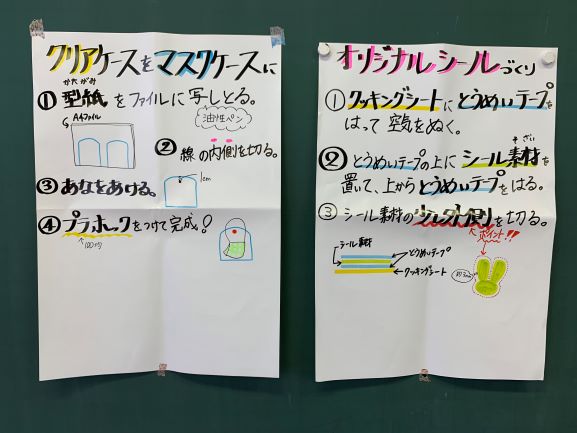 クリアケースをマスクケースに
かたがみ
①型紙をファイルに写しとる。
油性ペン
A4ファイル
②線の内側を切る。
③あなをあける。
1cm
④プラホックをつけて完成！
100均
オリジナルシールづくり
①クッキングシートにとうめいテープを
はって空気をぬく。
そざい
②とうめいテープの上にシール素材を
置いて、上からとうめいテープをはる。
③シール素材の少し外側を切る。
ポイント!!
シール素材
とうめいテープ
クッキングシート
約3mm